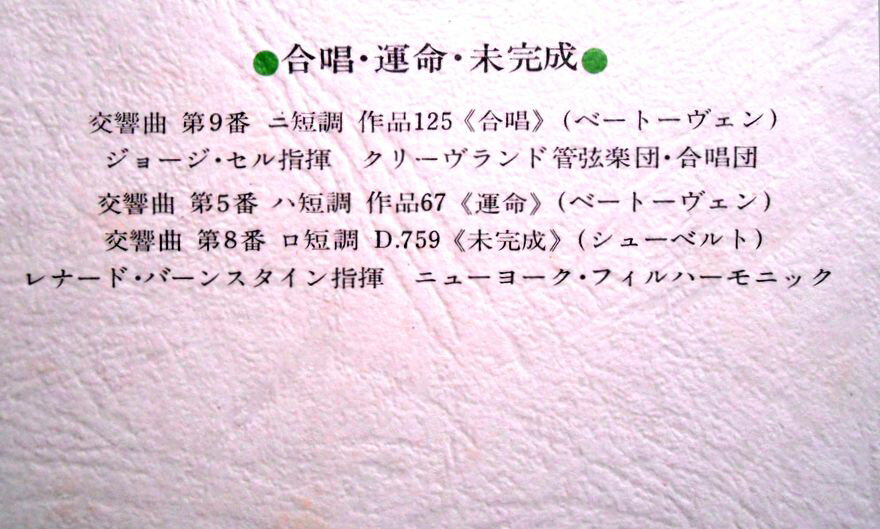 ●合唱・運命・未完成●
交響曲 第9番 ニ短調 作品125《合唱》(ベートーヴェン)
ジョージ・セル指揮　クリーヴランド管弦楽団・合唱団
交響曲 第5番 ハ短調 作品67《運命》(ベートーヴェン)
交響曲 第8番 ロ短調 D.759《未完成》(シューベルト)
レナード・バーンスタイン指揮　ニューヨーク・フィルハーモニック